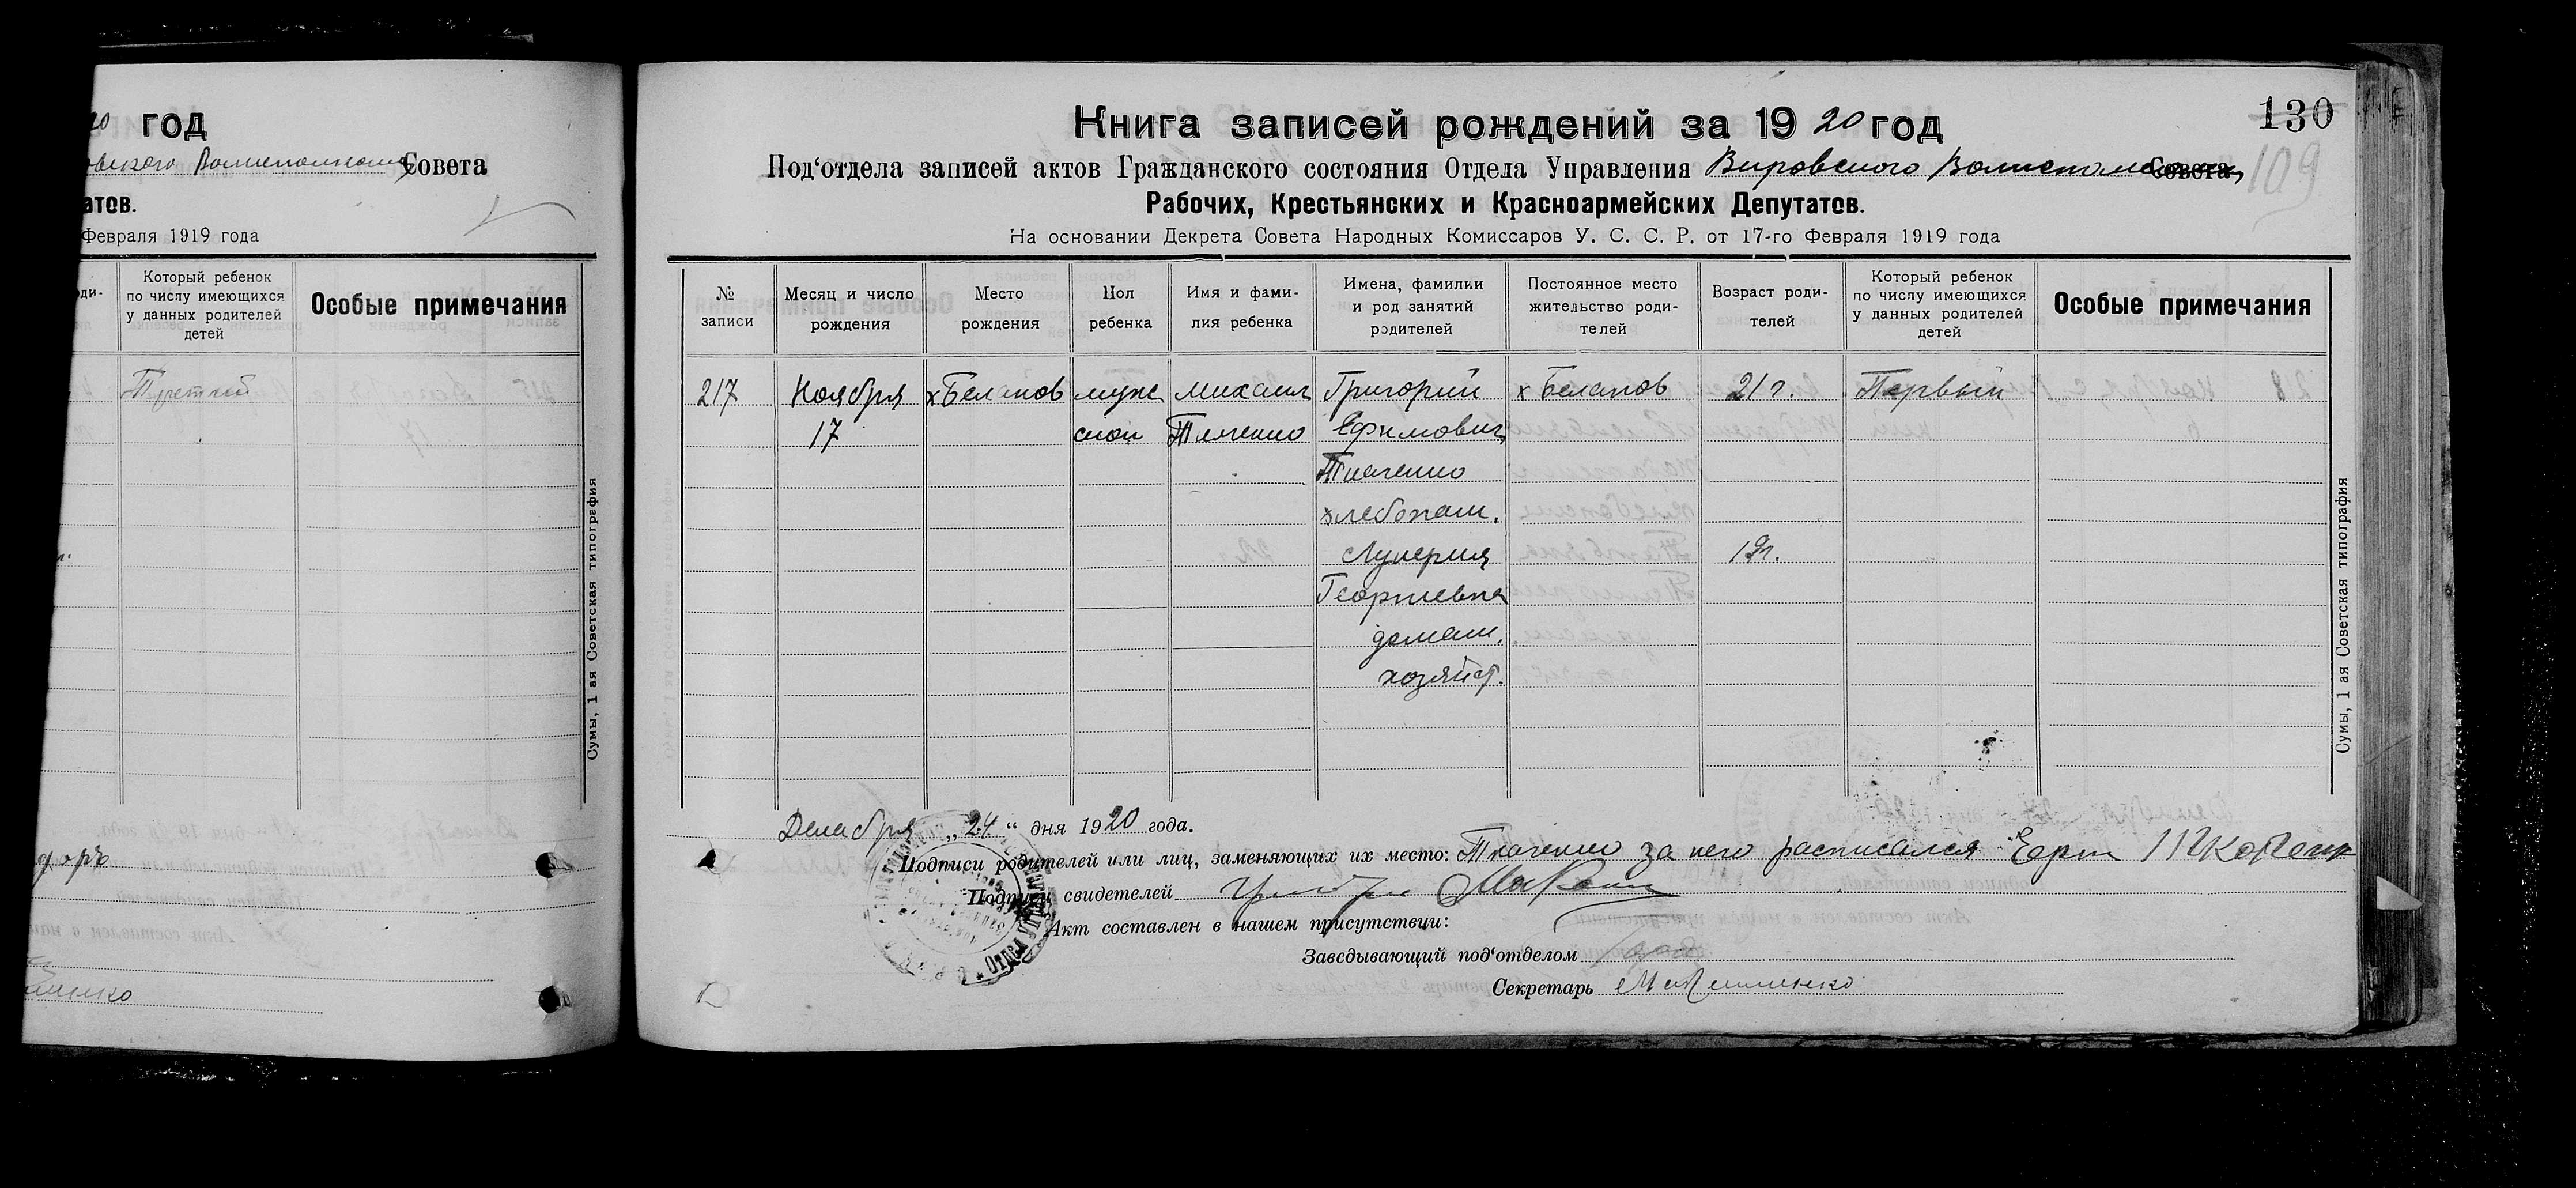 20 год
Совета
атов.
Февраля 1919 года
Который ребенок
по числу имеющихся
у данных родителей
детей
Особые примечания
Третий
Сумы, 1 ая Советская типография
130
109
Книга записей рождений за 1920 год
Под‘отдела записей актов Гражданского состояния Отдела Управления Вировского Совета
Рабочих, Крестьянских и Красноармейских Депутатов.
На основании Декрета Совета Народных Комиссаров У. С. С. Р. от 17-го Февраля 1919 года
№
записи
Месяц и число
рождения
Место
рождения
Пол
ребенка
Имя и фами-
лия ребенка
Имена, фамилии
и род занятий
родителей
Постоянное место
жительство роди-
телей
Возраст роди-
телей
Который ребенок
по числу имеющихся
у данных родителей
детей
Особые примечания
217 Ноября х Белапов муж Михаил Григорий х Белапов 21 г. Первый
17 ской Ткаченко Ефимович
Ткаченко
хлебопаш.
Лукерия 19 г.
Георгиевна
домаш.
хозяйст.
Сумы, 1 ая Советская типография
Декабря „24“ дня 1920 года.
Подписи родителей или лиц, заменяющих их место: Ткаченко за него расписался
Подписи свидетелей
Акт составлен в нашем присутствии:
Заведывающий под‘отделом
Секретарь